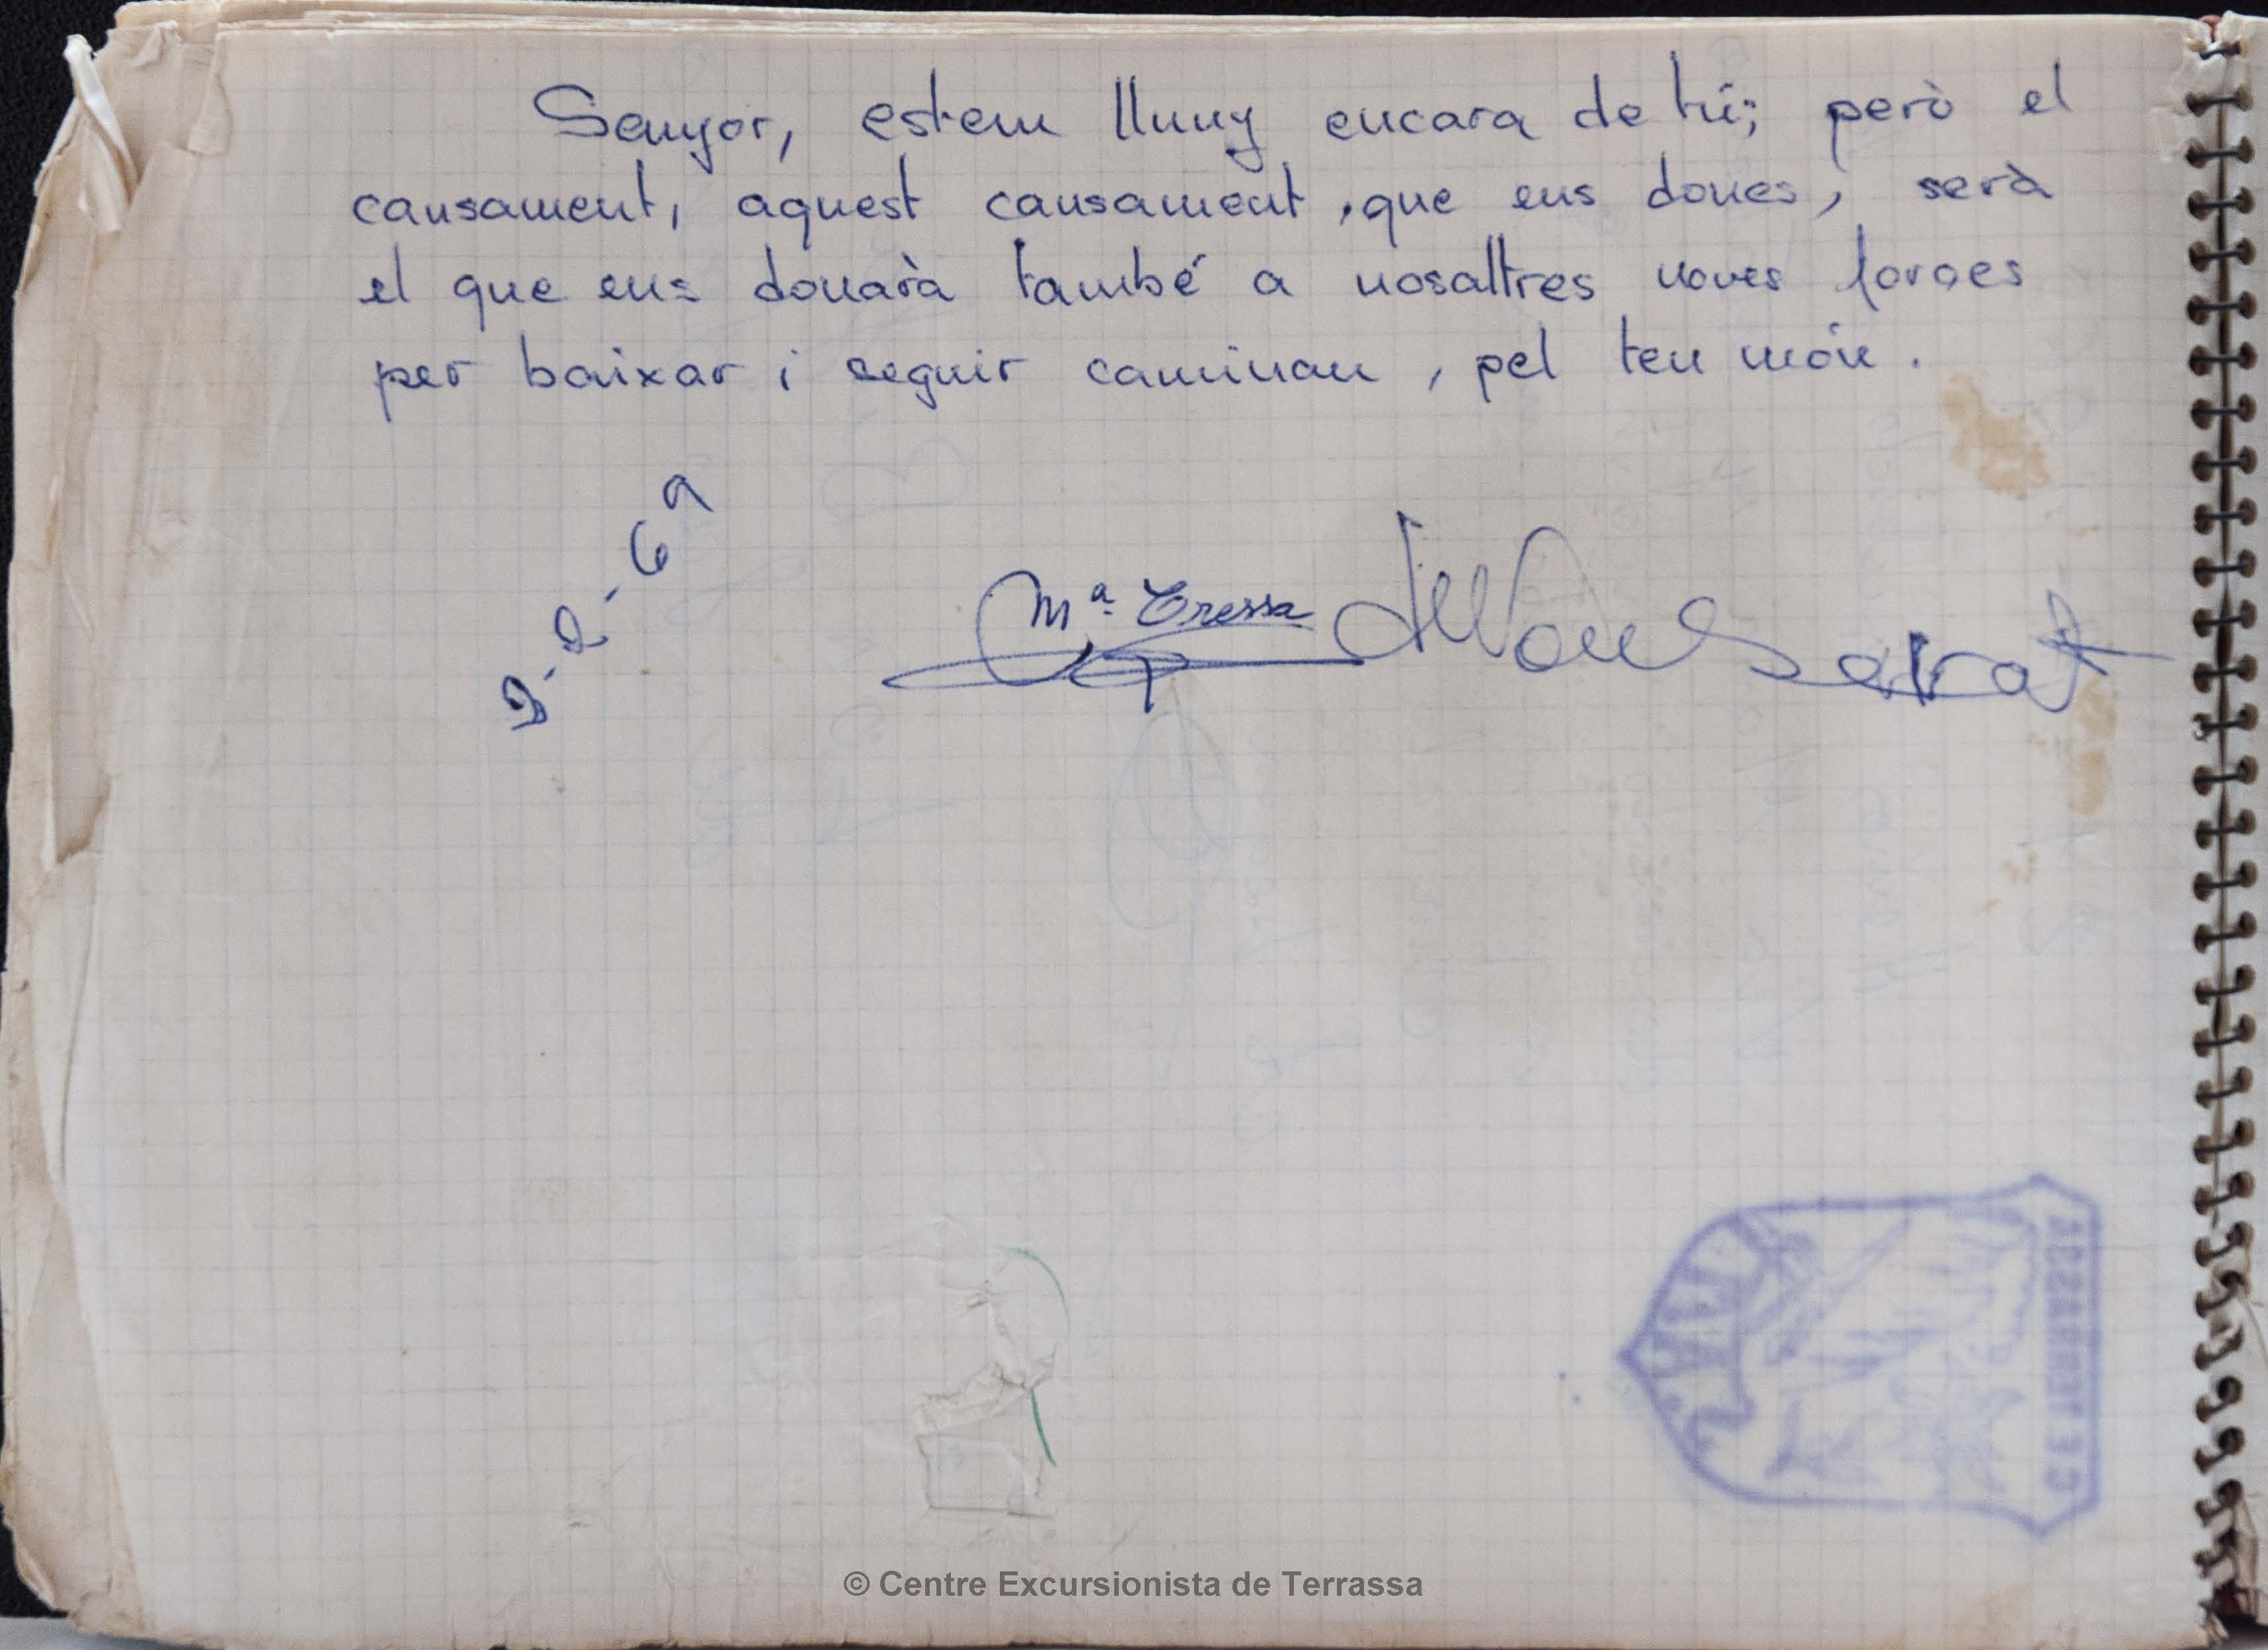 Senyor, estem lluny encara de tú; però el
cansament, aquest cansament, que ens dones, serà
el que ens donarà també a nosaltres noves forces
per baixar i seguir caminan, pel teu món.
2-2-69
Mª Tressa Monserrat
© Centre Excursionista de Terrassa